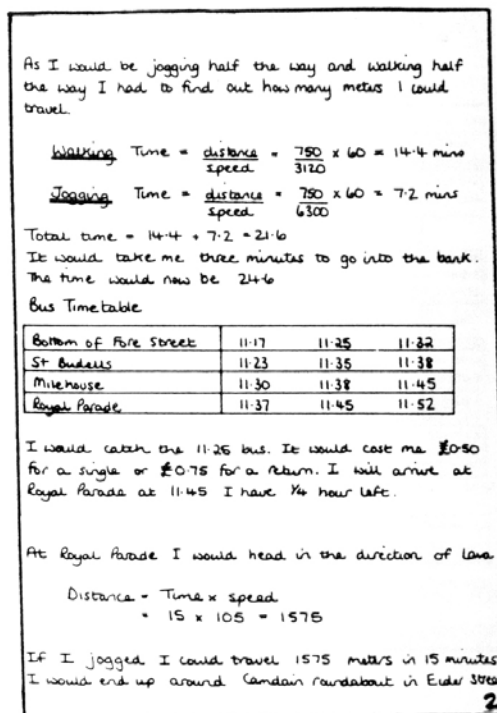 As I would be jogging half the way and walking half
the way I had to find out how many meters I could
travel.
Walking Time = distance/speed = 750/3120 x 60 = 14.4 mins
Jogging Time = distance/speed = 750/6300 x 60 = 7.2 mins
Total time = 14.4 + 7.2 = 21.6
It would take me three minutes to go into the bank.
The time would now be 24.6
Bus Timetable
Bottom of Fore Street 11.17 11.25 11.32
St Budeaus 11.23 11.35 11.38
Milehouse 11.30 11.38 11.45
Royal Parade 11.37 11.45 11.52
I would catch the 11.25 bus. It would cost me £0.50
for a single or £0.75 for a return. I will arrive at
Royal Parade at 11.45 I have 1/4 hour left.
At Royal Parade I would head in the direction of
Distance = Time x speed
= 15 x 105 = 1575
If I jogged I could travel 1575 meters in 15 minutes
I would end up around roundabout in
2